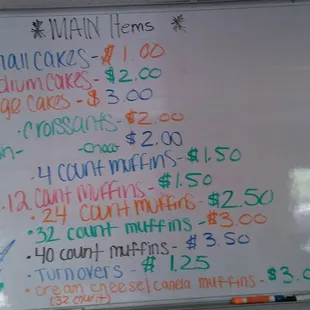 * MAIN Items *
mall cakes - $1.00
dium cakes - $2.00
ge cakes - $3.00
- croissants - $2.00
$2.00
. 4 count muffins - $1.50
. 12 count muffins - $1.50
. 24 count muffins - $2.50
. 32 count muffins - $3.00
. 40 count muffins - $3.50
. Turnovers - $1.25
. cream cheese/canela muffins - $3.0
(32 count)